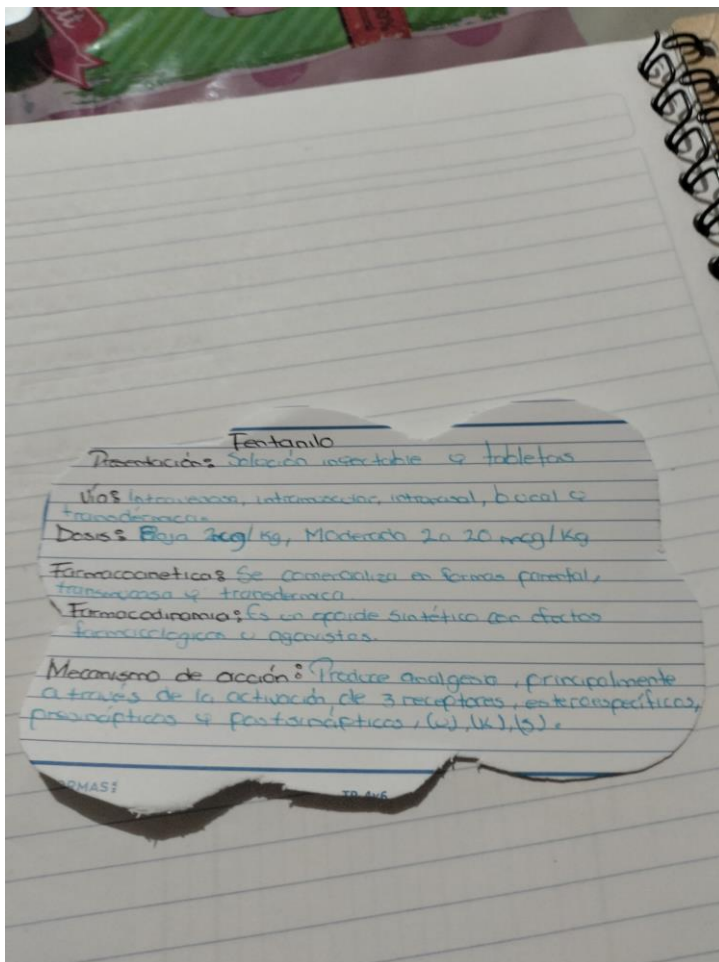 Fentanilo
Presentación: Solución inyectable y tabletas
Vías Intravenosa, intramuscular, intranasal, bucal y
transdérmica.
Dosis: Baja 2mcg/Kg, Moderada 2a 20 mcg/Kg
Farmacocinetica: Se comercializa en formas parental,
transmucosa y transdermica.
Farmacodinamia: Es un opioide sintético con efectos
farmacologicos y agonistas.
Mecanismo de acción: Produce analgesia, principalmente
a través de la activación de 3 receptores, esteroespecíficos,
presinápticos y postsinápticos, (u), (K), (s).
ORMAS